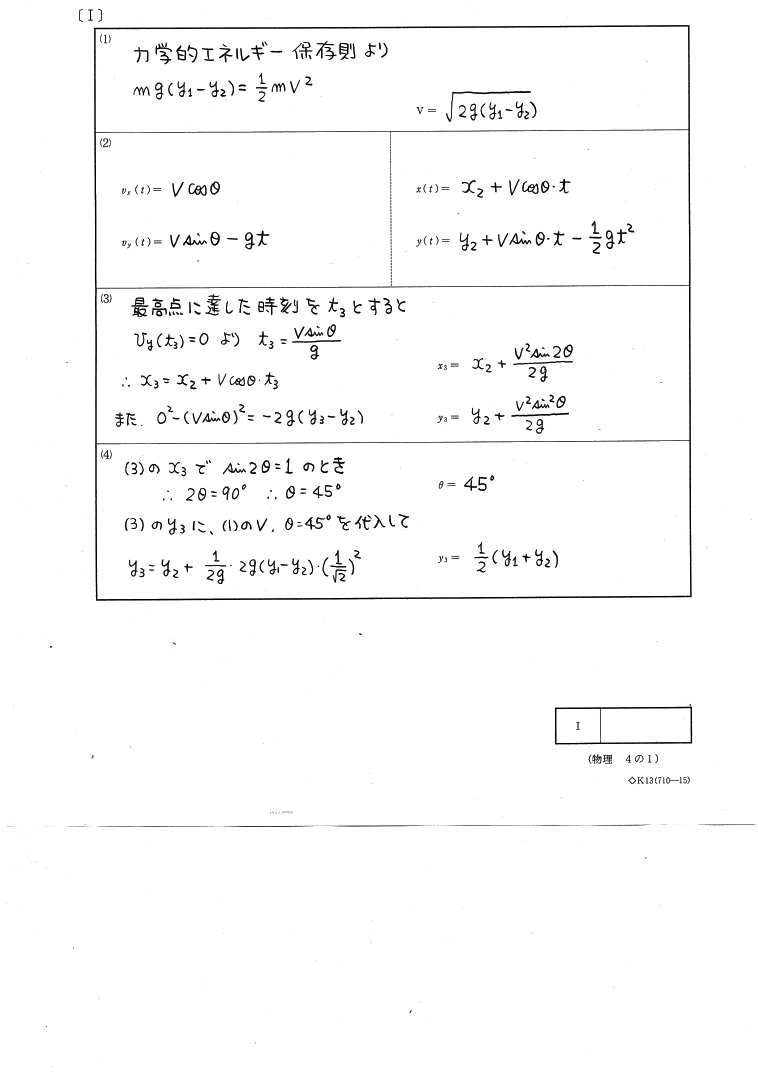 〔I〕
(1)
力学的エネルギー保存則より
mg(y₁−y₂)=½mV²
V=√(2g(y₁−y₂))
(2)
vₓ(t)= Vcosθ
x(t)= x₂+Vcosθ·t
v_y(t)= Vsinθ−gt
y(t)= y₂+Vsinθ·t−½gt²
(3)
最高点に達した時刻をt₃とすると
v_y(t₃)=0 より t₃=Vsinθ/g
∴ x₃=x₂+Vcosθ·t₃
x₃= x₂+V²sin2θ/2g
また、0²−(Vsinθ)²=−2g(y₃−y₂)
y₃= y₂+V²sin²θ/2g
(4)
(3)のx₃で sin2θ=1 のとき
∴ 2θ=90° ∴ θ=45°
θ= 45°
(3)のy₃に、(1)のV、θ=45°を代入して
y₃=y₂+1/2g·2g(y₁−y₂)·(1/√2)²
y₃= ½(y₁+y₂)
I
(物理 4の1)
◇K13(710—15)